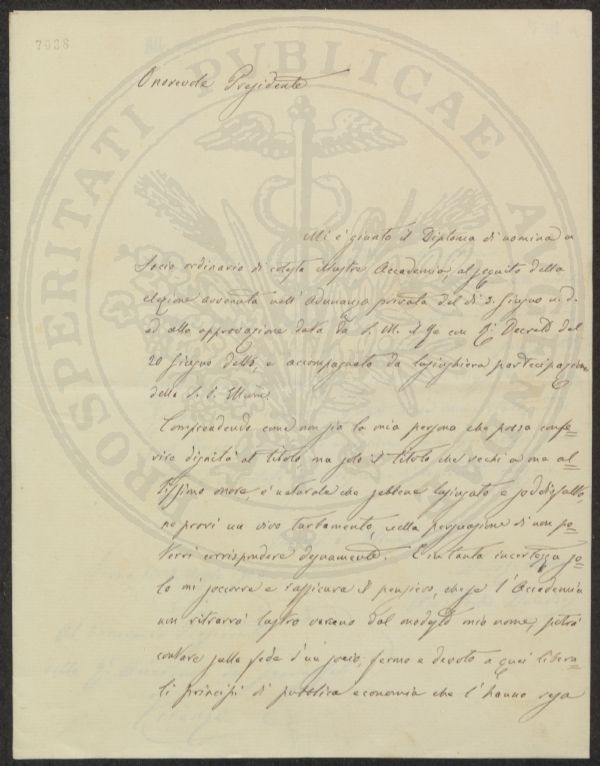 7036
Onorevole Presidente
Mi è giunto il Diploma di nomina a
Socio ordinario di cotesta Illustre Accademia, al seguito della
elezione avvenuta nell'Adunanza privata del dì 3. Giugno u.d.
ed alla approvazione data da S. M. il Re con Decreto del
20 Giugno detto, e accompagnato da lusinghiera partecipazione
della S. V. Illma.
Comprendendo come non sia la mia persona che possa confe=
rire dignità al titolo ma solo il titolo che rechi a me al=
tissimo onore, è naturale che sebbene lusingato e soddisfatto,
ne provi un vivo turbamento, nella persuasione di non po=
tervi corrispondere degnamente. E in tanta incertezza so=
lo mi soccorre e rassicura il pensiero, che se l'Accademia
non ritrarrà lustro veruno dal modesto mio nome, potrà
contare sulla fede d'un socio, fermo e devoto a quei libera=
li principi di pubblica economia che l'hanno resa
PROSPERITATI PUBLICAE